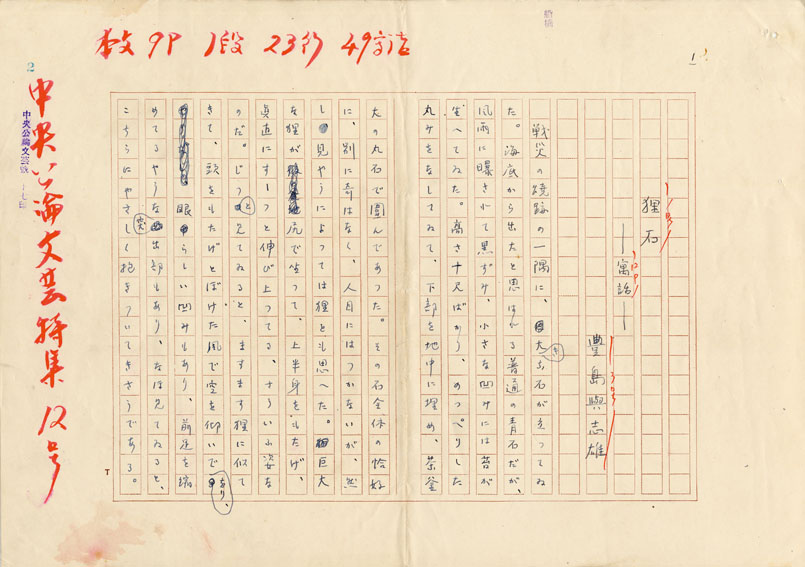 本文 9P 1段 23行 49字詰
1
狸石
―寓話―
豊島與志雄
戦災の焼跡の一隅に、大きな石が立つてゐ
た。海底から出たと思はれる普通の青石だが、
風雨に曝されて黒ずみ、小さな凹みには苔が
生へてゐた。高さ十尺ばかり、のつぺりした
丸みをなしてゐて、下部を地中に埋め、茶釜
大の丸石で囲んであつた。その石全体の恰好
に、別に奇はなく、人目にはつかないが、然
し見やうによつては狸とも思へた。巨大
な狸が尻で坐つて、上半身をもたげ、
真直にすーつと伸び上つてる、さういふ姿な
のだ。じつと見てゐると、ますます狸に似て
きて、頭をもたげとぼけた風で空を仰いであり、
眼らしい凹みもあり、前足を縮
めてるやうな突出部もあり、なほ見てゐると、
こちらにやさしく抱きついてきさうである。
2
中央公論文芸特集 12号
中央公論文芸
T